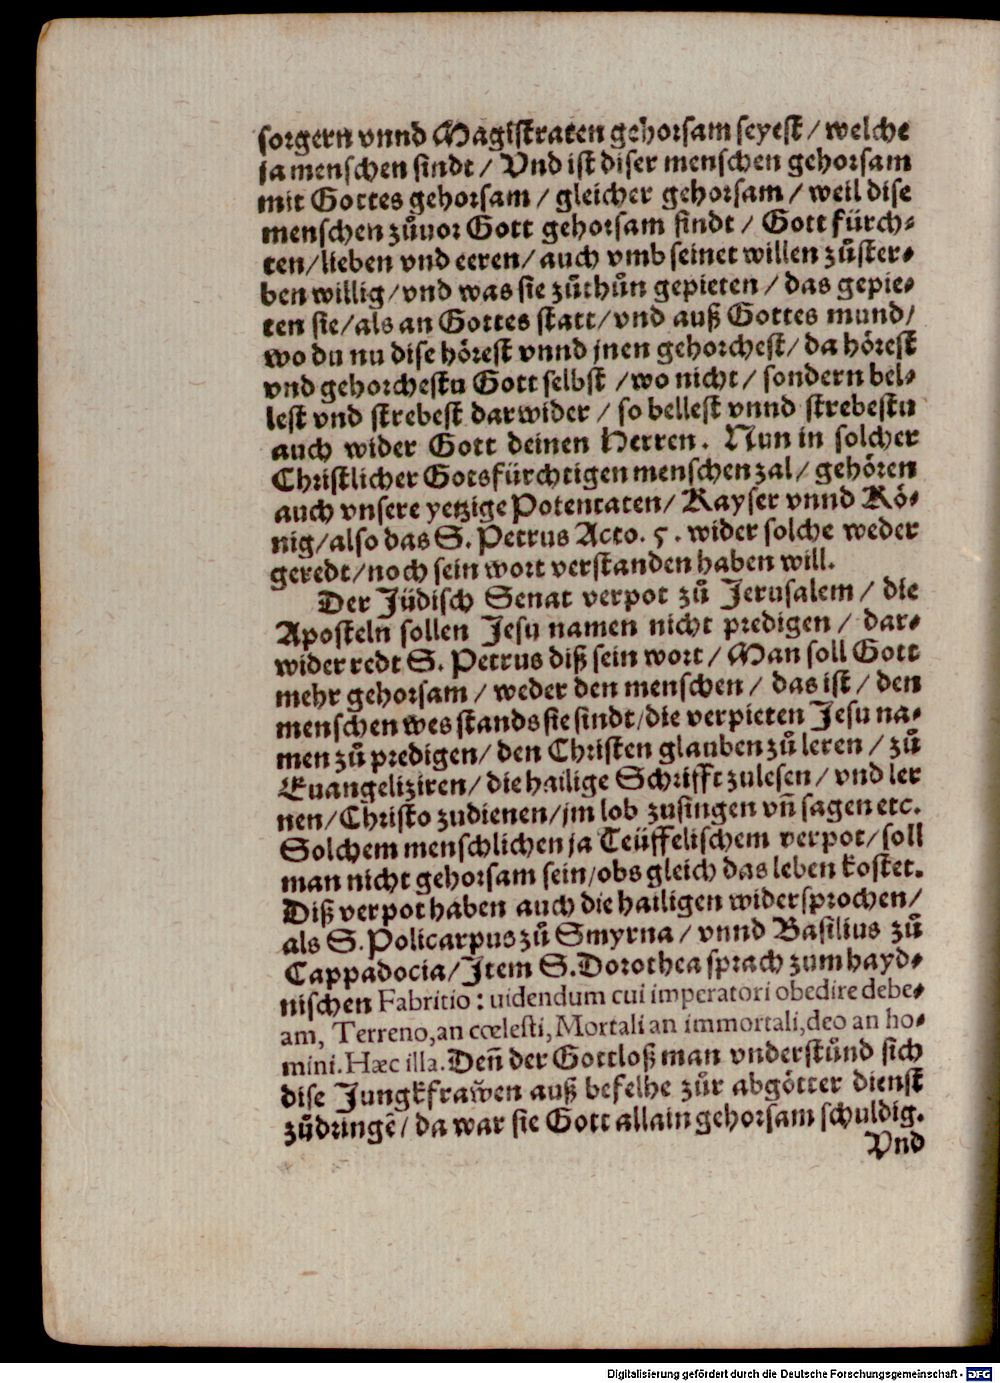 sorgern vnnd Magistraten gehorsam seyest / welche
ja menschen sindt / Vnd ist diser menschen gehorsam
mit Gottes gehorsam / gleicher gehorsam / weil dise
menschen zůuor Gott gehorsam sindt / Gott fürch-
ten/lieben vnd eeren/ auch vmb seinet willen zůster-
ben willig/vnd was sie zůthůn gepieten / das gepie-
ten sie/als an Gottes statt/vnd auß Gottes mund/
wo du nu dise hörest vnnd jnen gehorchest/ da hörest
vnd gehorchestu Gott selbst /wo nicht/ sondern bel-
lest vnd strebest darwider / so bellest vnnd strebestu
auch wider Gott deinen Herren. Nun in solcher
Christlicher Gotsfürchtigen menschen zal/ gehören
auch vnsere yetzige Potentaten/ Kayser vnnd Kö-
nig/also das S. Petrus Acto. 5. wider solche weder
geredt/noch sein wort verstanden haben will.
Der Jüdisch Senat verpot zů Jerusalem/ die
Aposteln sollen Jesu namen nicht predigen / dar-
wider redt S. Petrus diß sein wort/ Man soll Gott
mehr gehorsam / weder den menschen / das ist/ den
menschen wes stands sie sindt/die verpieten Jesu na-
men zů predigen/ den Christen glauben zů leren / zů
Euangeliziren/ die hailige Schrifft zulesen/ vnd ler
nen/Christo zudienen/jm lob zusingen vñ sagen etc.
Solchem menschlichen ja Teüffelischem verpot/ soll
man nicht gehorsam sein/obs gleich das leben kostet.
Diß verpot haben auch die hailigen widersprochen/
als S. Policarpus zů Smyrna / vnnd Basilius zů
Cappadocia/Item S. Dorothea sprach zum hayd-
nischen Fabritio : uidendum cui imperatori obedire debe-
am, Terreno, an cœlesti, Mortali an immortali, deo an ho-
mini. Hæc illa. Deñ der Gottloß man vnderstůnd sich
dise Jungkfrawen auß befelhe zůr abgötter dienst
zůdringẽ/ da war sie Gott allain gehorsam schuldig.
Vnd
Digitalisierung gefördert durch die Deutsche Forschungsgemeinschaft - DFG